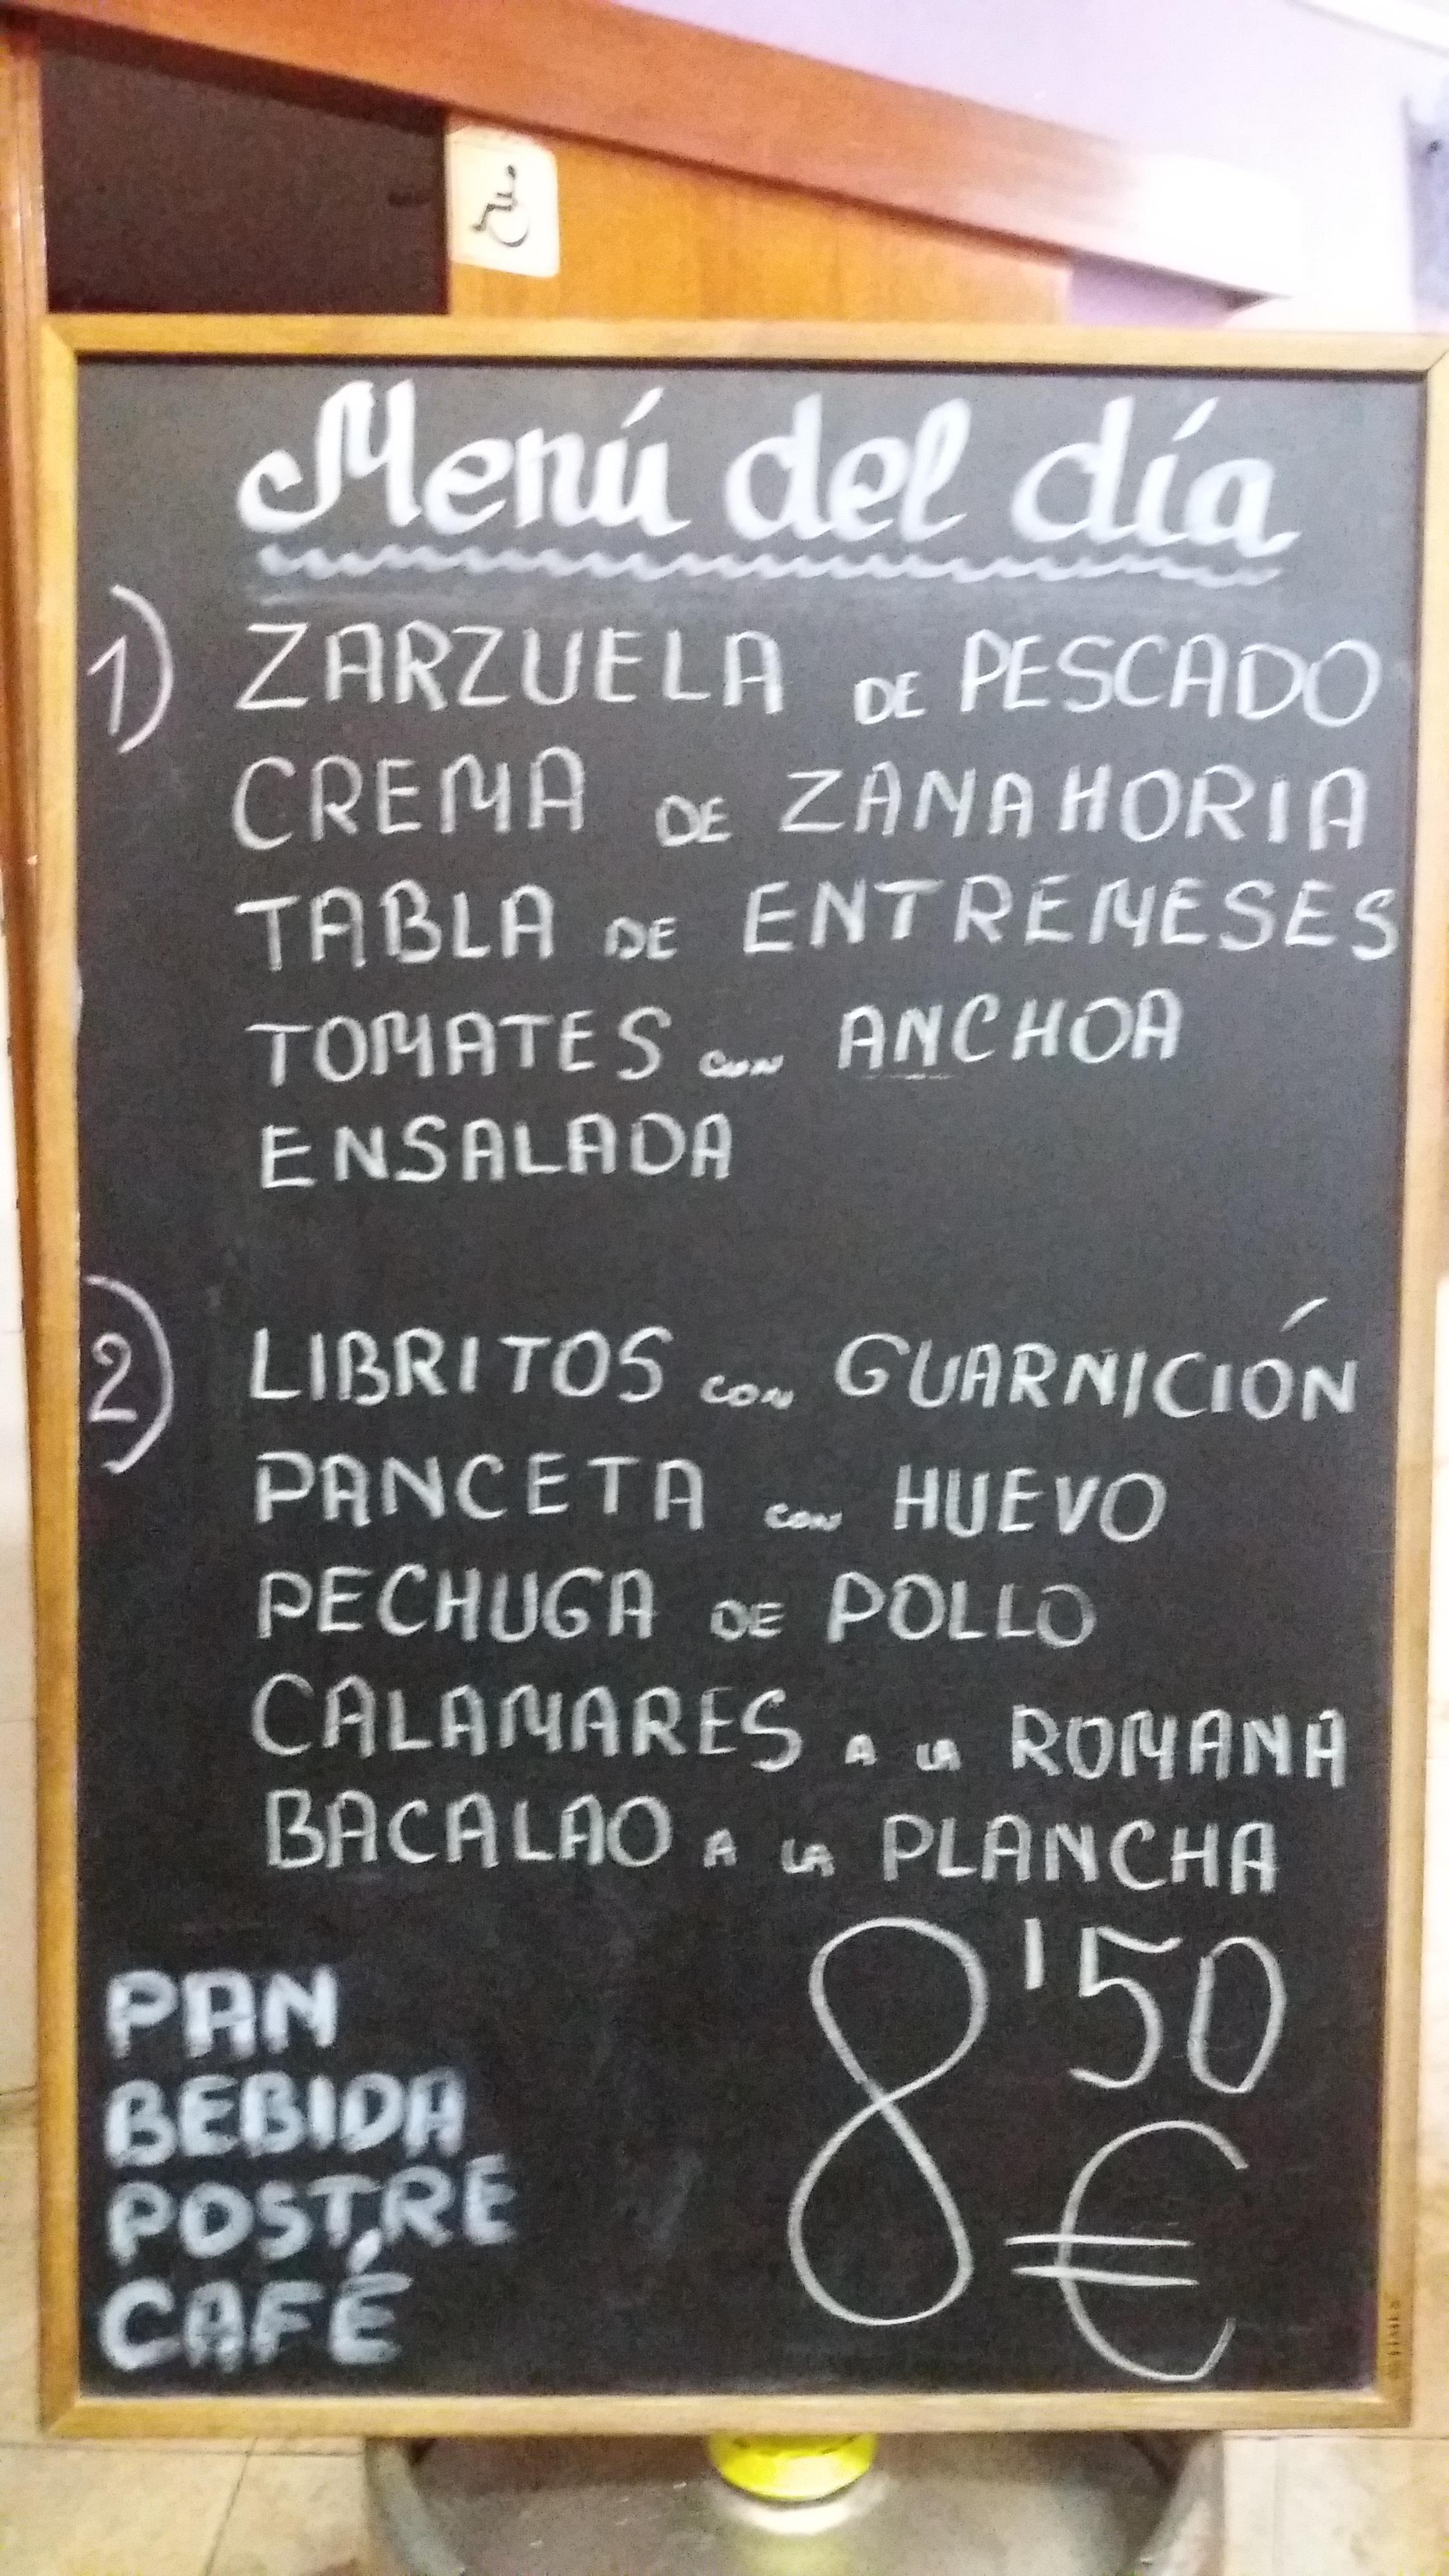 Menú del día
1) ZARZUELA DE PESCADO
CREMA DE ZANAHORIA
TABLA DE ENTREMESES
TOMATES con ANCHOA
ENSALADA
2) LIBRITOS con GUARNICIÓN
PANCETA con HUEVO
PECHUGA DE POLLO
CALAMARES A LA ROMANA
BACALAO A LA PLANCHA
PAN
BEBIDA
POSTRE
CAFÉ
8'50
€